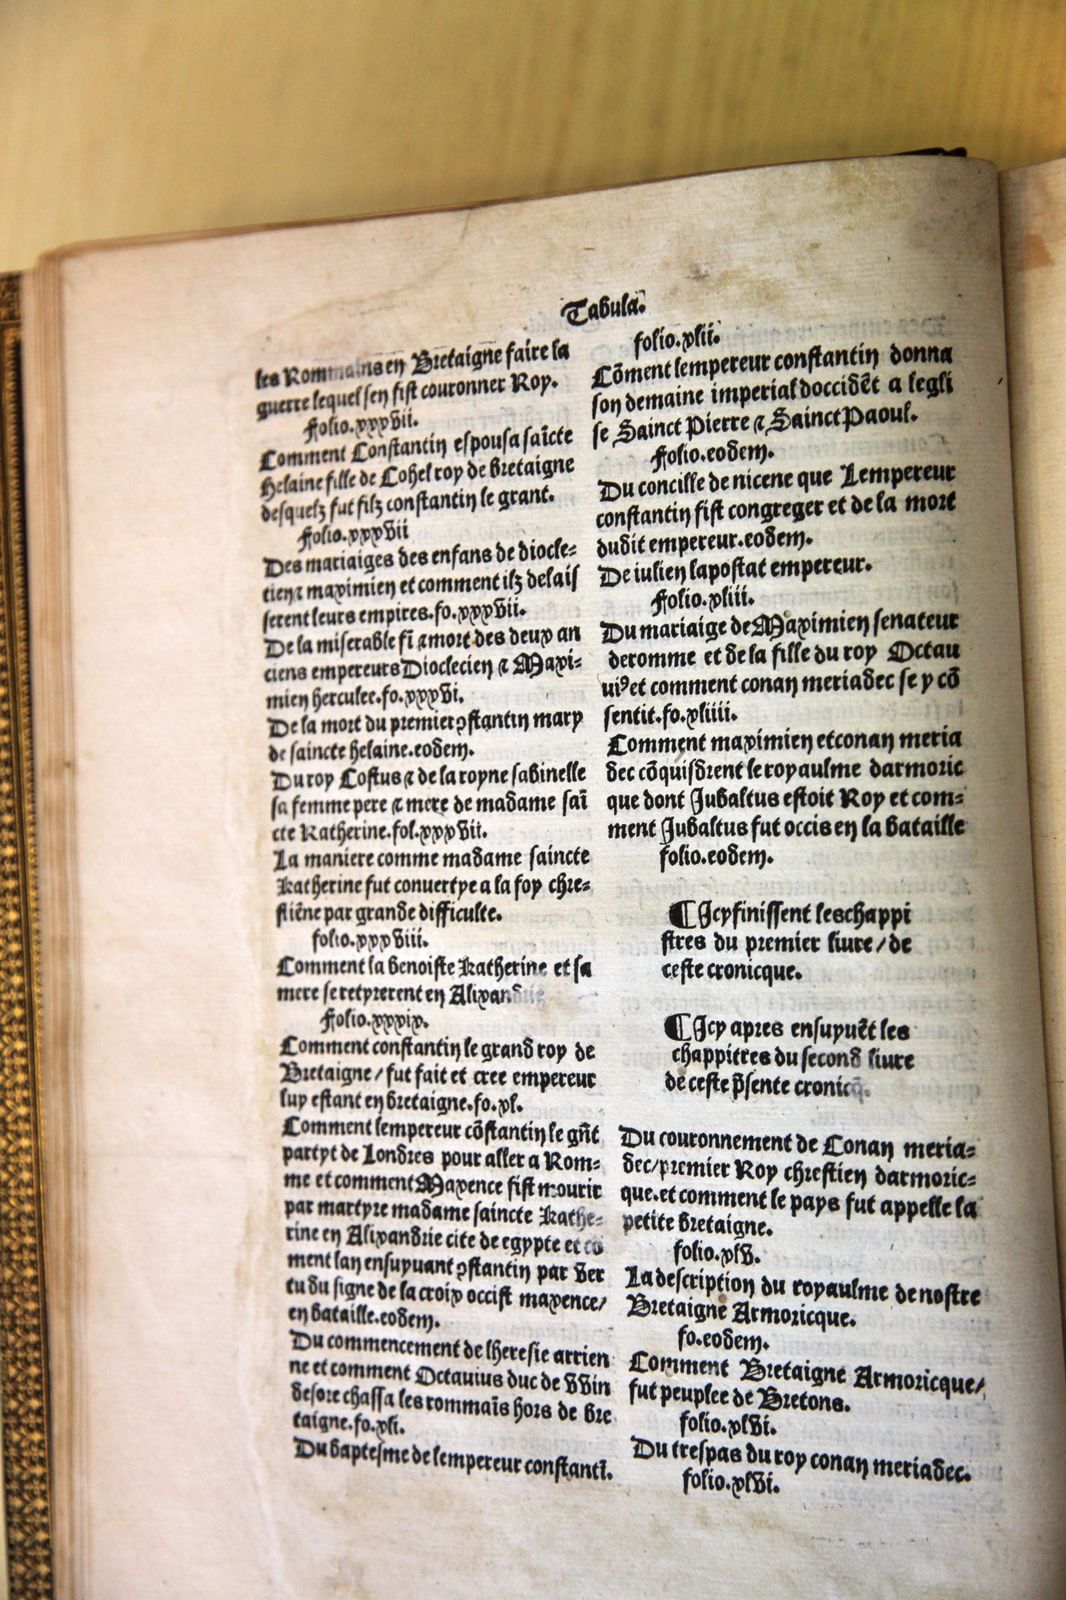 Tabula.
les Rommains en Bretaigne faire la
guerre lequel sen fist couronner Roy.
Folio.xxxvii.
Comment Constantin espousa saīcte
Helaine fille de Cohel roy de bretaigne
desquelz fut filz constantin le grant.
Folio.xxxvii
Des mariaiges des enfans de diocle-
tien ⁊ maximien et comment ilz delais
serent leurs empires.fo.xxxvii.
De la miserable fī ⁊ mort des deux an
ciens empereurs Dioclecien ⁊ Maxi-
mien herculee.fo.xxxvi.
De la mort du premier ꝯstantin mary
de saincte helaine.eodem.
Du roy Costus ⁊ de la royne sabinelle
sa femme pere ⁊ mere de madame saī
cte Katherine.fol.xxxvii.
La maniere comme madame saincte
katherine fut conuertye a la foy chre-
stiēne par grande difficulte.
folio.xxxviii.
Comment la benoiste katherine et sa
mere se retyrerent en Alixandrie
Folio.xxxix.
Comment constantin le grand roy de
Bretaigne/fut fait et cree empereur
luy estant en bretaigne.fo.xl.
Comment lempereur cōstantin le grāt
partyt de Londres pour aller a Rom-
me et comment Maxence fist mourir
par martyre madame saincte kathe-
rine en Alixandrie cite de egypte et co
ment lan ensuyuant ꝯstantin par ver
tu du signe de la croix occist maxence/
en bataille.eodem.
Du commencement de lheresie arrien
ne et comment Octauius duc de vvin
desore chassa les rommaīs hors de bre
taigne.fo.xli.
Du baptesme de lempereur constantī.
folio.xlii.
Cōment lempereur constantin donna
son demaine imperial doccidēt a legli
se Sainct Pierre ⁊ Sainct Paoul.
Folio.eodem.
Du concille de nicene que Lempereur
constantin fist congreger et de la mort
dudit empereur.eodem.
De iulien lapostat empereur.
Folio.xliii.
Du mariaige de Maximien senateur
deromme et de la fille du roy Octau
uiꝰ et comment conan meriadec se y cō
sentit.fo.xliiii.
Comment maximien et conan meria
dec cōquisdrent le royaulme darmoric
que dont Jubaltus estoit Roy et com-
ment Jubaltus fut occis en la bataille
folio.eodem.
¶ Icy finissent les chappi
stres du premier liure/de
ceste cronicque.
¶ Icy apres ensuyuēt les
chappitres du second liure
de ceste p̄sente cronicq̄.
Du couronnement de Conan meria-
dec/premier Roy chrestien darmoric-
que.et comment le pays fut appelle la
petite bretaigne.
folio.xlv.
La description du royaulme de nostre
Bretaigne Armoricque.
fo.eodem.
Comment Bretaigne Armoricque/
fut peuplee de Bretons.
folio.xlvi.
Du trespas du roy conan meriadec.
folio.xlvi.